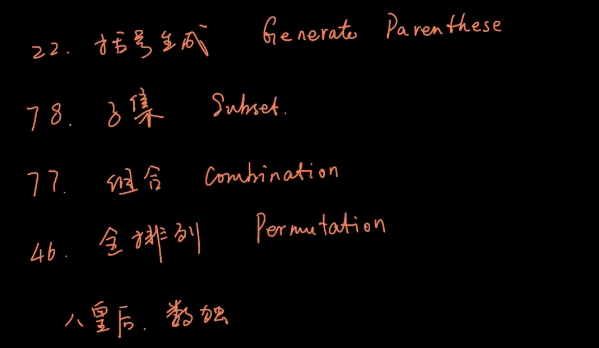 22. 括号生成 Generate Parenthese
78. 子集 Subset.
77. 组合 Combination
46. 全排列 Permutation
八皇后. 数独